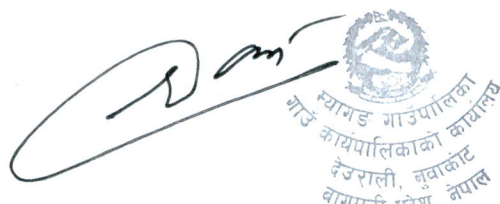 म्यागङ गाउँपालिका
गाउँ कार्यपालिकाको कार्यालय
देउराली, नुवाकोट
बागमती प्रदेश, नेपाल